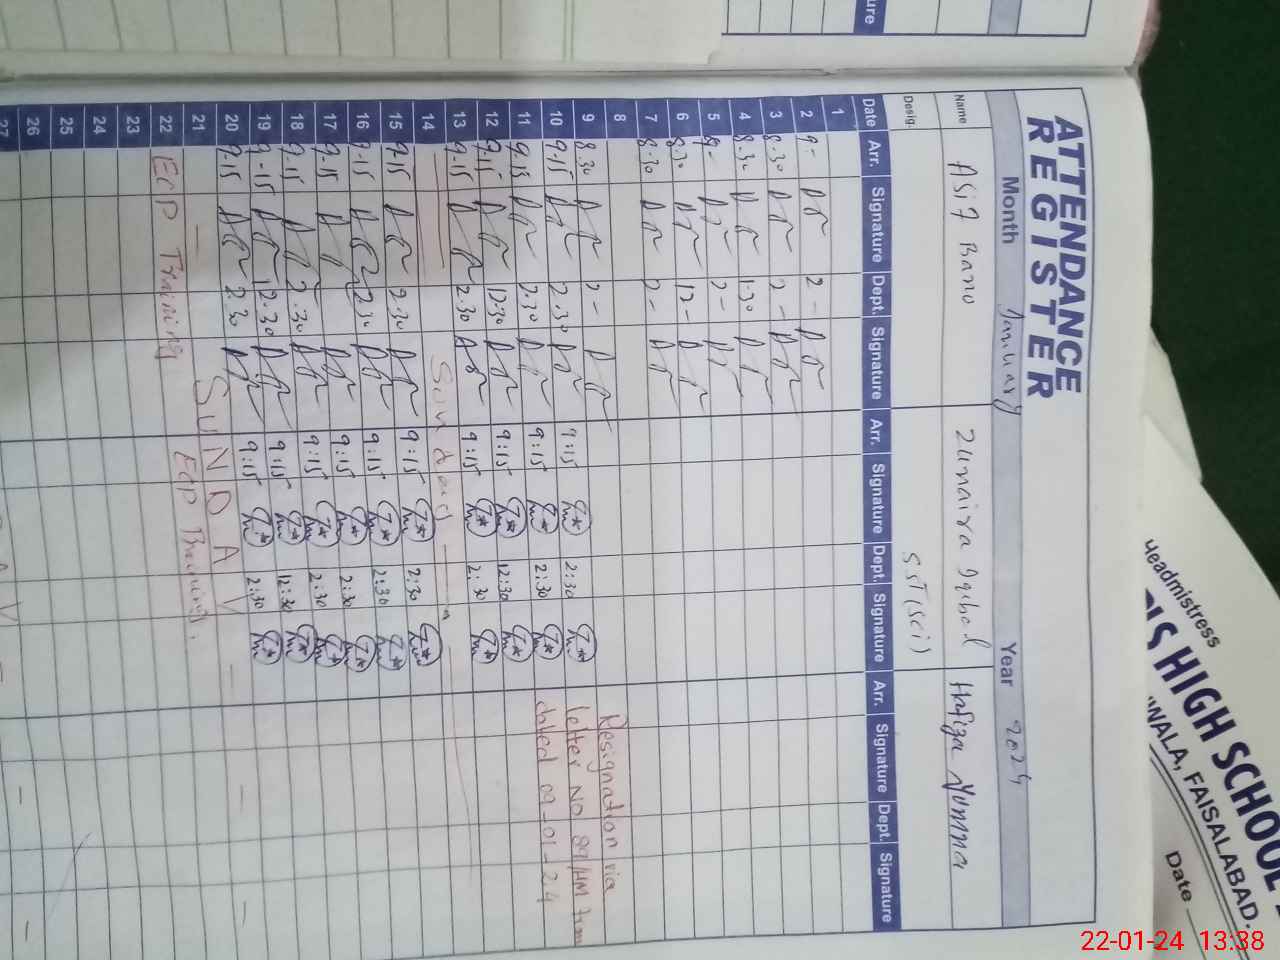 ATTENDANCE
REGISTER
Month January Year 2024
Name Asif Bano Zunaira Iqbal Hafiza Yumna
Desig. SST(Sci)
Date Arr. Signature Dept. Signature Arr. Signature Dept. Signature Arr. Signature Dept. Signature
1
2 9- 2-
3 8.30 2-
4 8.30 1.30
5 9- 2-
6 8.30 12-
7 8.30 2-
8
9 8.30 2- Resignation via
10 9.15 2.30 9:15 2:30 letter NO 89/HM
11 9.15 2.30 9:15 2:30 dated 09-01-24
12 9.15 12:30 9:15 12:30
13 9.15 2.30 9:15 2:30
14 Sunday
15 9.15 2.30 9:15 2:30
16 9.15 2.30 9:15 2:30
17 9.15 9:15 2:30
18 9.15 2.30 9:15 2:30
19 9.15 12.30 9:15 12:30
20 9.15 2.30 9:15 2:30
21 SUNDAY
22 ECP Training ECP Training
23
24
25
26
27
ure
Headmistress
HIGH SCHOOL
WALA, FAISALABAD.
Date
22-01-24 13:38